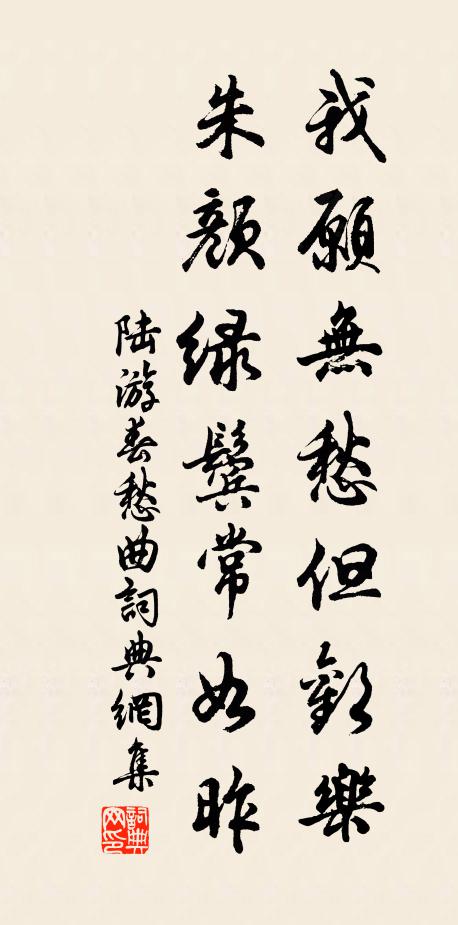 我願無愁但歡樂
朱顏緑鬢常如昨
陸游春愁曲詞典網集
詞典網印